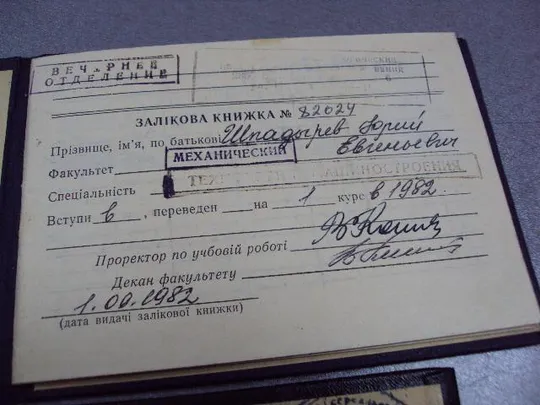 ВЕЧЕРНЕЕ
ОТДЕЛЕНИЕ
ЗАЛІКОВА КНИЖКА № 82024
Прізвище, ім'я, по батькові Шпадырев Юрий
Евгеньевич
Факультет МЕХАНИЧЕСКИЙ
Спеціальність
Вступи в, переведен на 1 курс в 1982.
Проректор по учбовій роботі
Декан факультету
1.09.1982
(дата видачі залікової книжки)